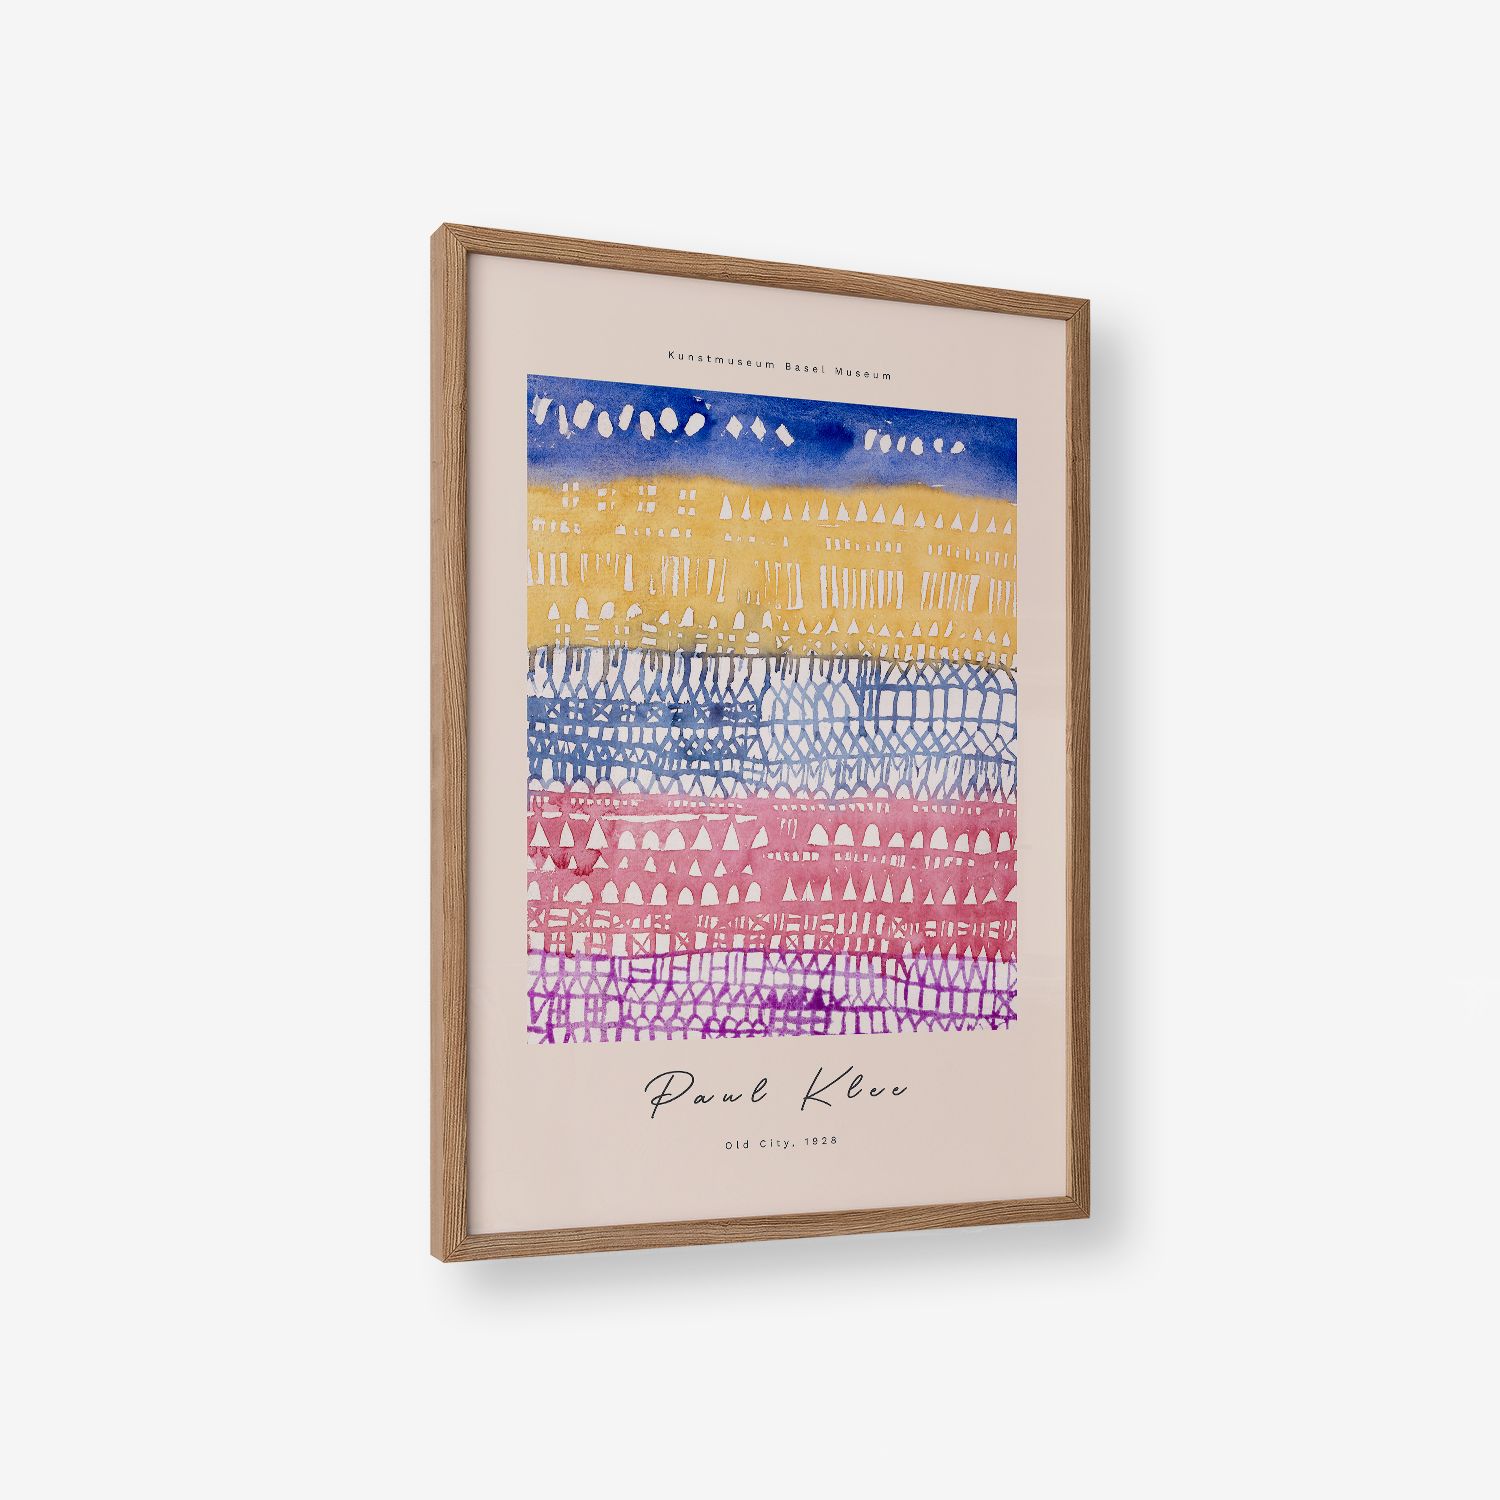 Kunstmuseum Basel Museum
Paul Klee
Old City, 1928